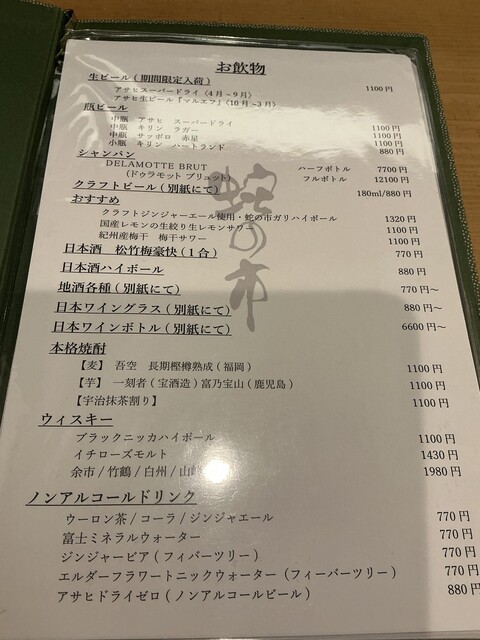 お飲物
生ビール ( 期間限定入荷 )
アサヒスーパードライ〈4月～9月〉 1100円
アサヒ生ビール『マルエフ』〈10月~3月〉
瓶ビール
中瓶 アサヒ スーパードライ
中瓶 キリン ラガー 1100円
中瓶 サッポロ 赤星 1100円
小瓶 キリン ハートランド 880円
シャンパン
DELAMOTTE BRUT ハーフボトル 7700円
(ドゥラモット ブリュット) フルボトル 12100円
クラフトビール ( 別紙にて ) 180ml/880円
おすすめ
クラフトジンジャーエール使用・蛇の市ガリハイボール 1320円
国産レモンの生絞り生レモンサワー 1100円
紀州産梅干 梅干サワー 1100円
日本酒 松竹梅豪快 ( 1合 ) 770円
日本酒ハイボール 880円
地酒各種 ( 別紙にて ) 770円～
日本ワイングラス ( 別紙にて ) 880円～
日本ワインボトル ( 別紙にて ) 6600円～
本格焼酎
【麦】 吾空 長期樫樽熟成 ( 福岡 ) 1100円
【芋】 一刻者 ( 宝酒造 ) 富乃宝山 ( 鹿児島 ) 1100円
【宇治抹茶割り】 1100円
ウィスキー
ブラックニッカハイボール 1100円
イチローズモルト 1430円
余市 / 竹鶴 / 白州 / 山崎 1980円
ノンアルコールドリンク
ウーロン茶 / コーラ / ジンジャエール 770円
富士ミネラルウォーター 770円
ジンジャービア ( フィバーツリー ) 770円
エルダーフラワートニックウォーター ( フィーバーツリー ) 770円
アサヒドライゼロ ( ノンアルコールビール ) 880円
蛇の市